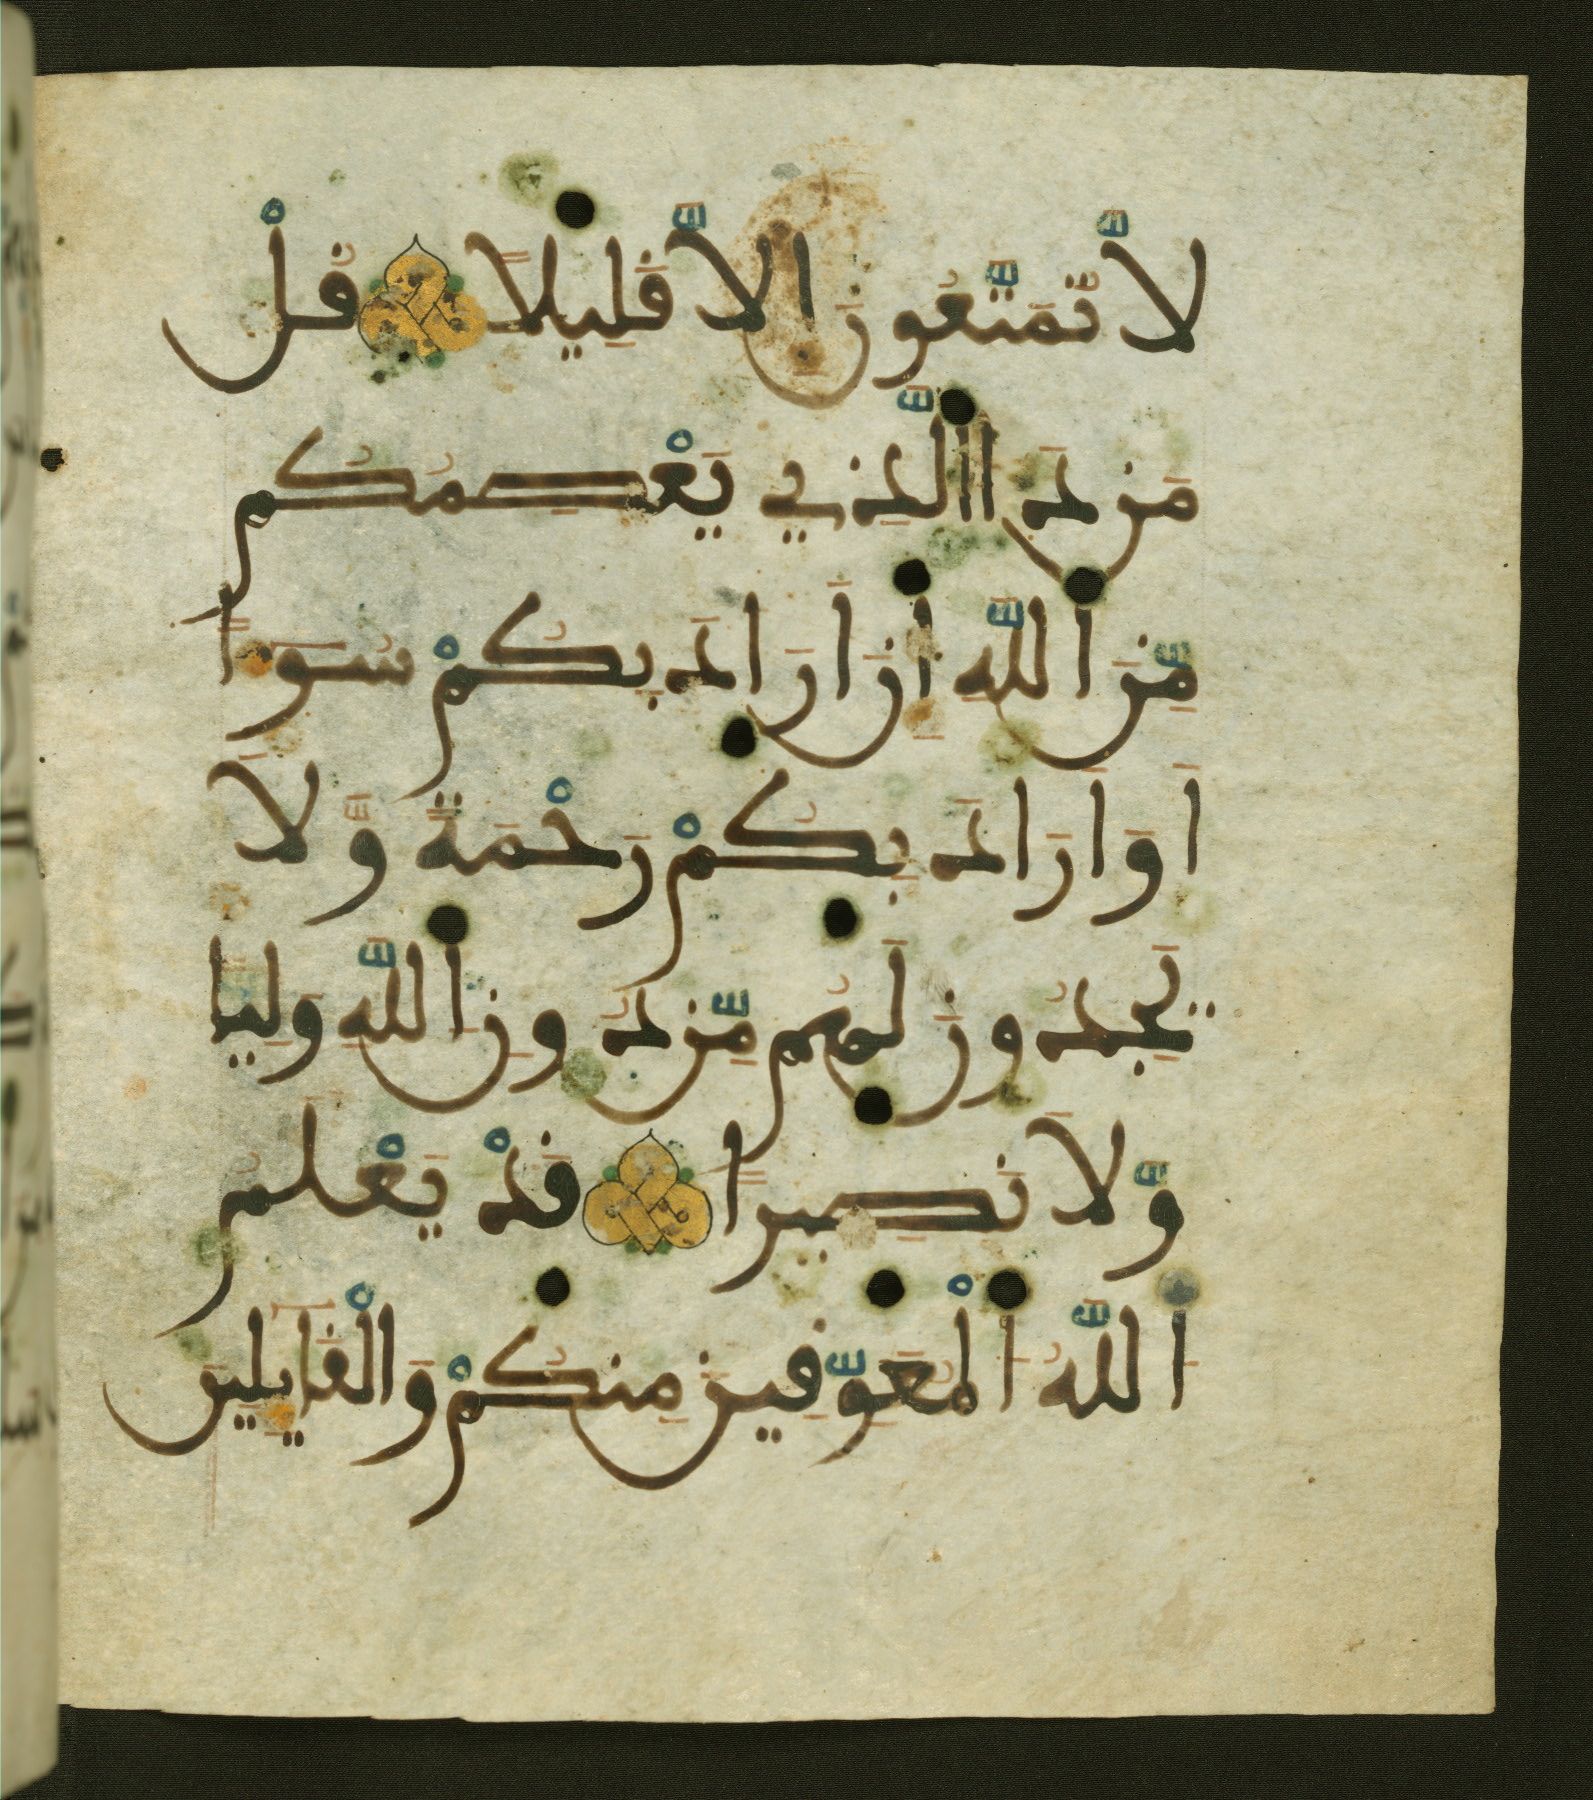 لَّا تُمَتَّعُونَ إِلَّا قَلِيلًا قُلْ
مَن ذَا الَّذِي يَعْصِمُكُم
مِّنَ اللَّهِ إِنْ أَرَادَ بِكُمْ سُوءًا
أَوْ أَرَادَ بِكُمْ رَحْمَةً وَّلَا
يَجِدُونَ لَهُم مِّن دُونِ اللَّهِ وَلِيًّا
وَّلَا نَصِيرًا قَدْ يَعْلَمُ
اللَّهُ الْمُعَوِّقِينَ مِنكُمْ وَالْقَايِلِينَ